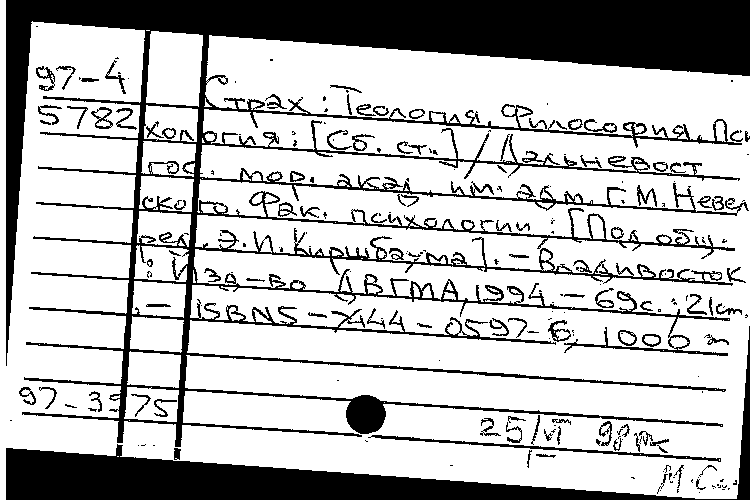 97-4
5782
Страх: Теология, Философия, Пси
хология: [Сб. ст.] / Дальневост.
гос. мор. акад. им. адм. Г. М. Невел
ского. Фак. психологии; [Под общ.
ред. Э. И. Киршбаума]. - Владивосток
: Изд-во ДВГМА, 1994. - 69с.; 21см.
. - ISBN5-7444-0597-6, 1000
97-3975
25/VI 98